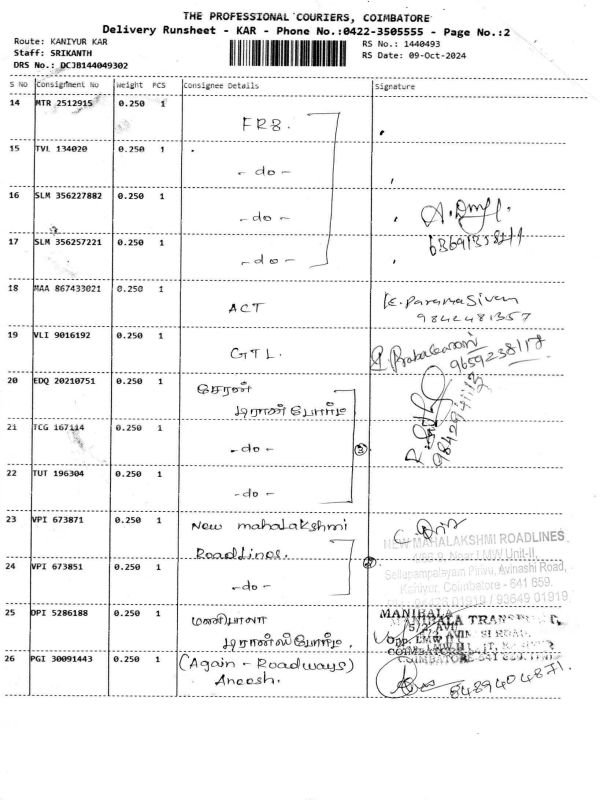 THE PROFESSIONAL COURIERS, COIMBATORE
Delivery Runsheet - KAR - Phone No.:0422-3505555 - Page No.:2
Route: KANIYUR KAR
RS No.: 1440493
Staff: SRIKANTH
RS Date: 09-Oct-2024
DRS No.: DCJB144049302
S No Consignment No Weight PCS Consignee Details Signature
14 MTR 2512915 0.250 1 FRB.
15 TVL 134020 0.250 1 - do -
16 SLM 356227882 0.250 1 - do -
17 SLM 356257221 0.250 1 - do -
18 MAA 867433021 0.250 1 ACT K. Paramasivan
9842481357
19 VLI 9016192 0.250 1 GTL. Prabakaran
9659238118
20 EDQ 20210751 0.250 1 சேரன்
டிரான்போர்ட்
21 TCG 167114 0.250 1 - do - 3
22 TUT 196304 0.250 1 - do -
23 VPI 673871 0.250 1 New mahalakshmi
Roadlines.
NEW MAHALAKSHMI ROADLINES
Near LMW Unit-II,
24 VPI 673851 0.250 1 - do - 2
Sellappampalayam Pirivu, Avinashi Road,
Kaniyur, Coimbatore - 641 659.
93649 01919
25 DPI 5286188 0.250 1 மணிபாலா
டிரான்ஸ்போர்ட்.
MANIBALA TRANSPORT,
26 PGI 30091443 0.250 1 (Again - Roadways)
Aneesh.
8489404871.